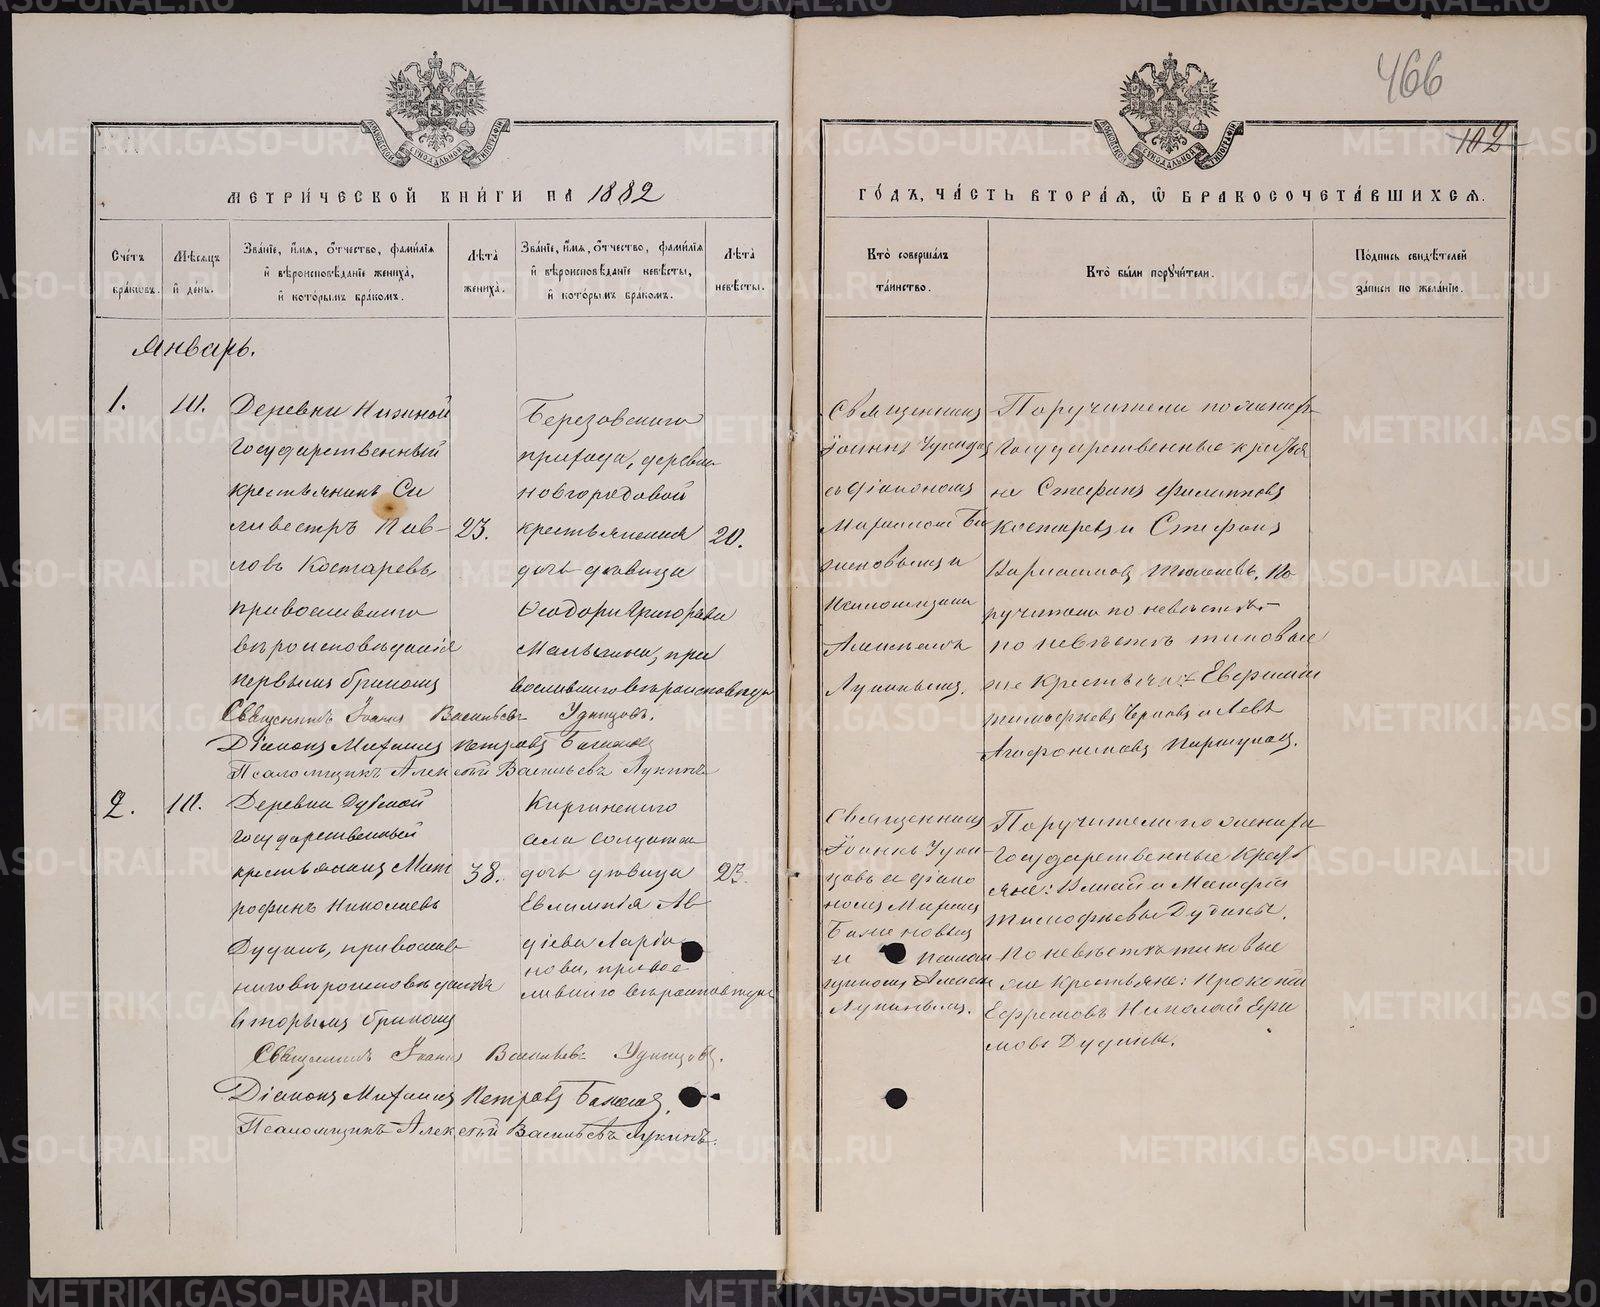 466
102
МЕТРИ́ЧЕСКОЙ КНИ́ГИ НА 1882
ГО́ДЪ, ЧА́СТЬ ВТОРА́Я, Ѿ БРАКОСОЧЕТА́ВШИХСЯ.
Сче́тъ бра́ковъ.
Мѣ́сяцъ и҆ де́нь.
Зва́нїе, и҆́мя, о҆́тчество, фами́лїя и҆ вѣроисповѣ́данїе жениха̀, и҆ кото́рымъ бра́комъ.
Лѣ́та жениха̀.
Зва́нїе, и҆́мя, о҆́тчество, фами́лїя и҆ вѣроисповѣ́данїе невѣ́сты, и҆ кото́рымъ бра́комъ.
Лѣ́та невѣ́сты.
Кто̀ соверша́лъ та́инство.
Кто̀ бы́ли поручи́тели.
По́дпись свидѣ́телей за́писи по жела́нїю.
Январь.
1.
Ш.
Деревни
Государственный
крестьянинъ Си
ливестръ Пав-
ловъ Костаревъ
православнаго
вѣроисповѣданія
первымъ бракомъ
23.
Березовскаго
прихода, деревни
новгородовой
крестьянская
дочь дѣвица
Ѳеодора Григорьева
православнаго вѣроисповѣда
20.
Священникъ
Іоаннъ Удинцов
съ діакономъ
Михаиломъ Ба
женовымъ и
псаломщикомъ
Алексѣемъ
Лукинымъ.
Поручители по жениху
Государственные крестья
не Стефанъ Филипповъ
Костаревъ и Стефанъ
Варлаамовъ По
ручители по невѣстѣ
по невѣстѣ таковые
же Крестьяне Евфимій
Тимофѣевъ и Левъ
Агафониковъ
Священникъ Іоаннъ Васильевъ Удинцовъ.
Діаконъ Михаилъ Петровъ Баженовъ
Псаломщикъ Алексѣй Васильевъ Лукинъ
2.
Ш.
Деревни Дубской
государственный
крестьянинъ Мит
рофанъ Николаевъ
Дудинъ, православ
наго вѣроисповѣданія
вторымъ бракомъ
38.
Киргинскаго
села солдатская
дочь дѣвица
Евлампія Ав
діева Ларіо
нова, правос
лавнаго вѣроисповѣдан
23.
Священникъ
Іоаннъ Удин
цовъ съ діако
номъ Михаил
Баженовымъ
и псалом
щикомъ Алексѣем
Лукинымъ.
Поручители по жениху
Государственные Крест
яне: и Матфій
Тимофѣевы Дудины.
По невѣстѣ таковые
же крестьяне: Прокопій
Ефремовъ Николай Ефре
мовъ Дудины.
Священникъ Іоаннъ Васильевъ Удинцовъ.
Діаконъ Михаилъ Петровъ Баженовъ.
Псаломщикъ Алексѣй Васильевъ Лукинъ.
METRIKI.GASO-URAL.RU